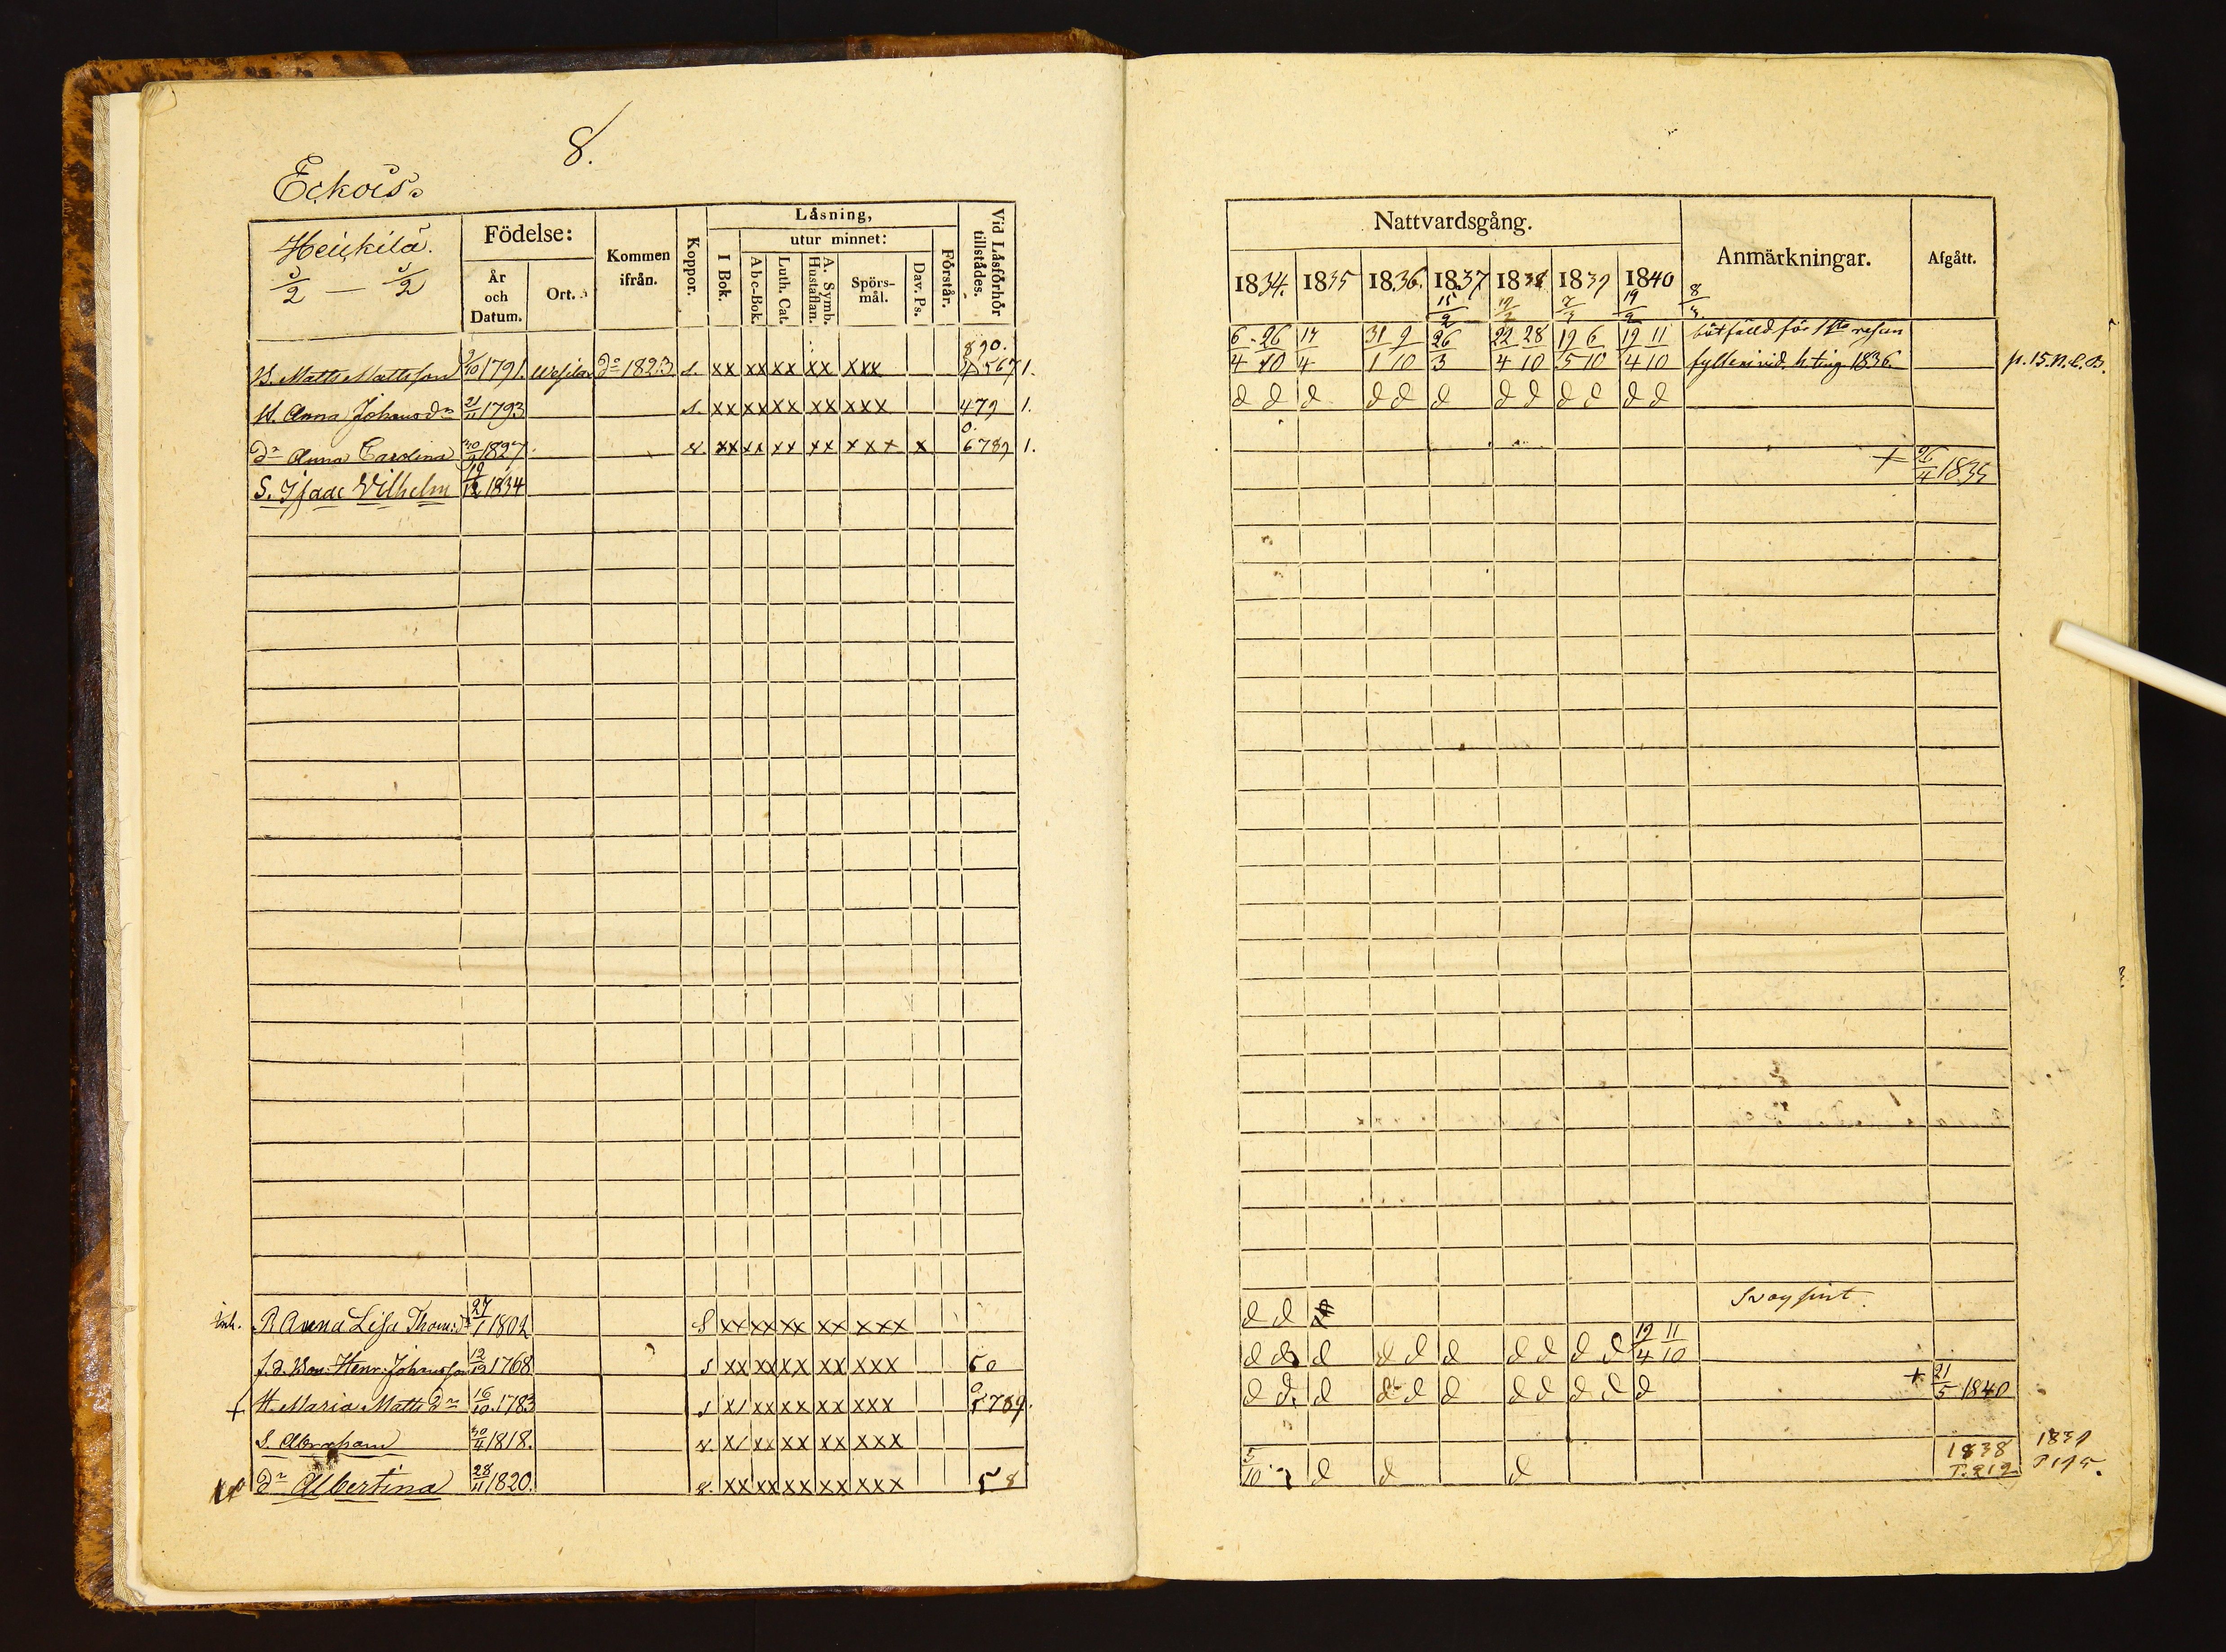 8.
Eckois
Heickilä.
Födelse:
År och Datum.
Ort.
Kommen ifrån.
Koppor.
Läsning,
utur minnet:
I Bok.
Abc-Bok.
Luth. Cat.
A. Symb. Hustaflan.
Spörsmål.
Dav. Ps.
Förstår.
Vid Läsförhör tillstädes.
B. Matts Mattsson 9/10 1791. do 1823 s. xx xx xx xx xxx 890. 4567 1.
H. Anna Johansdr 21/11 1793 s. xx xx xx xx xxx 479 1.
dr Anna Carolina 30/9 1827. v. xx xx xx xx xxx x 0. 6789 1.
S. Isaac Wilhelm 19/12 1834
inh. P. Anna Lisa Thom:dr 27/1 1802 S xx xx xx xx xxx
f.d. Bon. Henr. Johansson 12/12 1768 s xx xx xx xx xxx 50
+ H. Maria Matts dr 16/10. 1783 s x/ xx xx xx xxx 0 5789.
S. Abraham 30/4 1818. v. x/ xx xx xx xxx
dr Albertina 28/11 1820. v. xx xx xx xx xxx 58
Nattvardsgång.
Anmärkningar.
Afgått.
1834. 1835 1836. 1837 1838 1839 1840
15/2 19/2 7/3 19/2 8/3
6/4 26/10 14/4 31/1 9/10 26/3 22/4 28/10 19/5 6/10 19/4 11/10 bötfälld för 1sta resan
fylleri vid h. ting 1836. p. 15. N. C. B.
d d d d d d d d d d d d
+ 26/4 1835
d d d Svagsint.
d d d d d d d d d d 19/4 11/10
d d. d d d d d d d d d + 21/5 1840
5/10 d d d 1838 P. 212 1839 P 175.